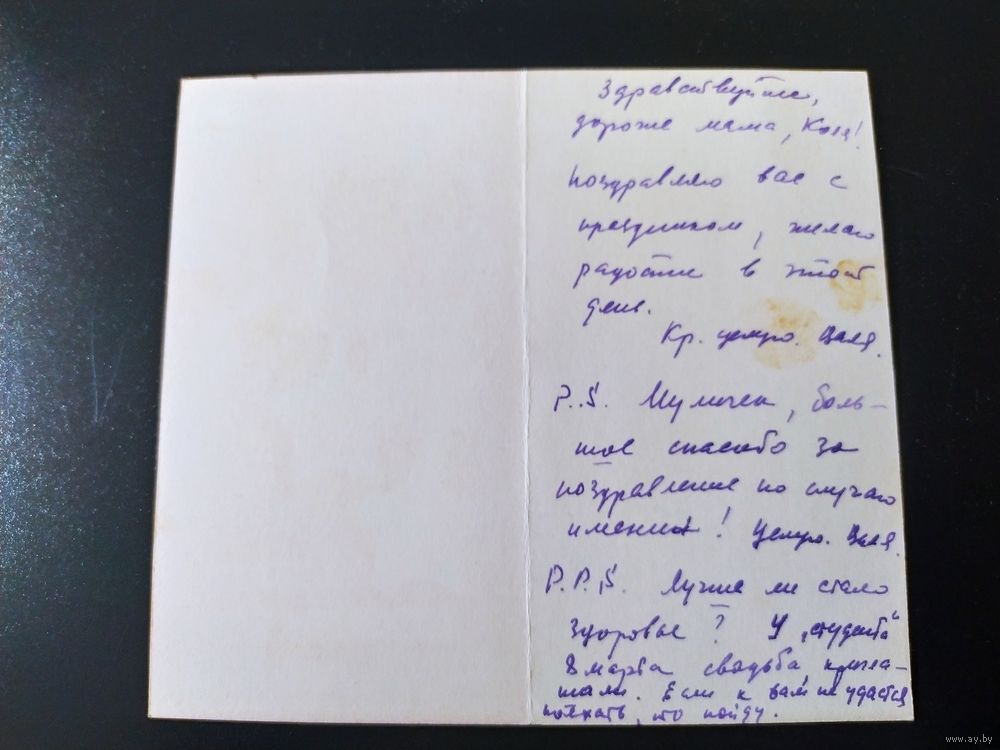 Здравствуйте,
дорогие мама, Коля!
Поздравляю вас с
праздником, желаю
радости в этот
день.
Кр. целую. Валя.
P.S. Муличек, боль-
шое спасибо за
поздравление по случаю
именин! Целую. Валя.
P.P.S. Лучше ли стало
здоровье? У „студента“
8 марта свадьба, пригла-
шали. Если к вам не удастся
поехать, то пойду.
www.ay.by